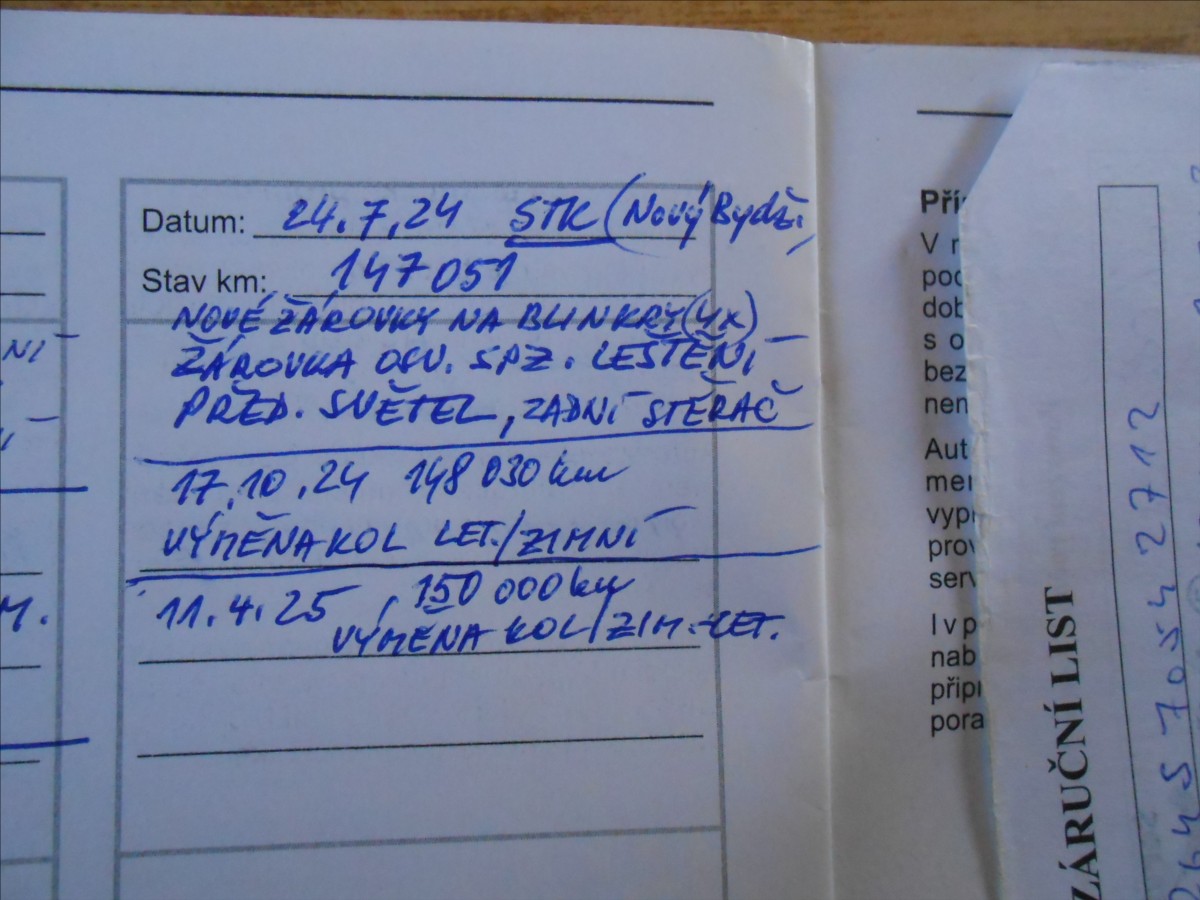 NÍ
M.
Datum: 24.7.24 STK (Nový Bydž.)
Stav km: 147051
NOVÉ ŽÁROVKY NA BLINKRY (4x)
ŽÁROVKA OSV. SPZ. LEŠTĚNÍ
PŘED. SVĚTEL, ZADNÍ STĚRAČ
17.10.24 148 030 km
VÝMĚNA KOL LET./ZIMNÍ
11.4.25, 150 000 km
VÝMĚNA KOL/ZIM.-LET.
Pří
V
pod
dob
s o
bez
nem
Aut
mer
vyp
prov
serv
I v p
nab
přip
pora
ZÁRUČNÍ LIST